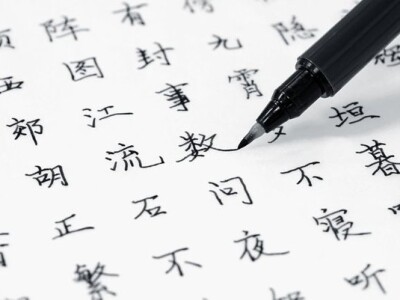 阵有
西图封九隐
郊江事霄
胡流数垣
正石问不暮
繁不夜寝
听